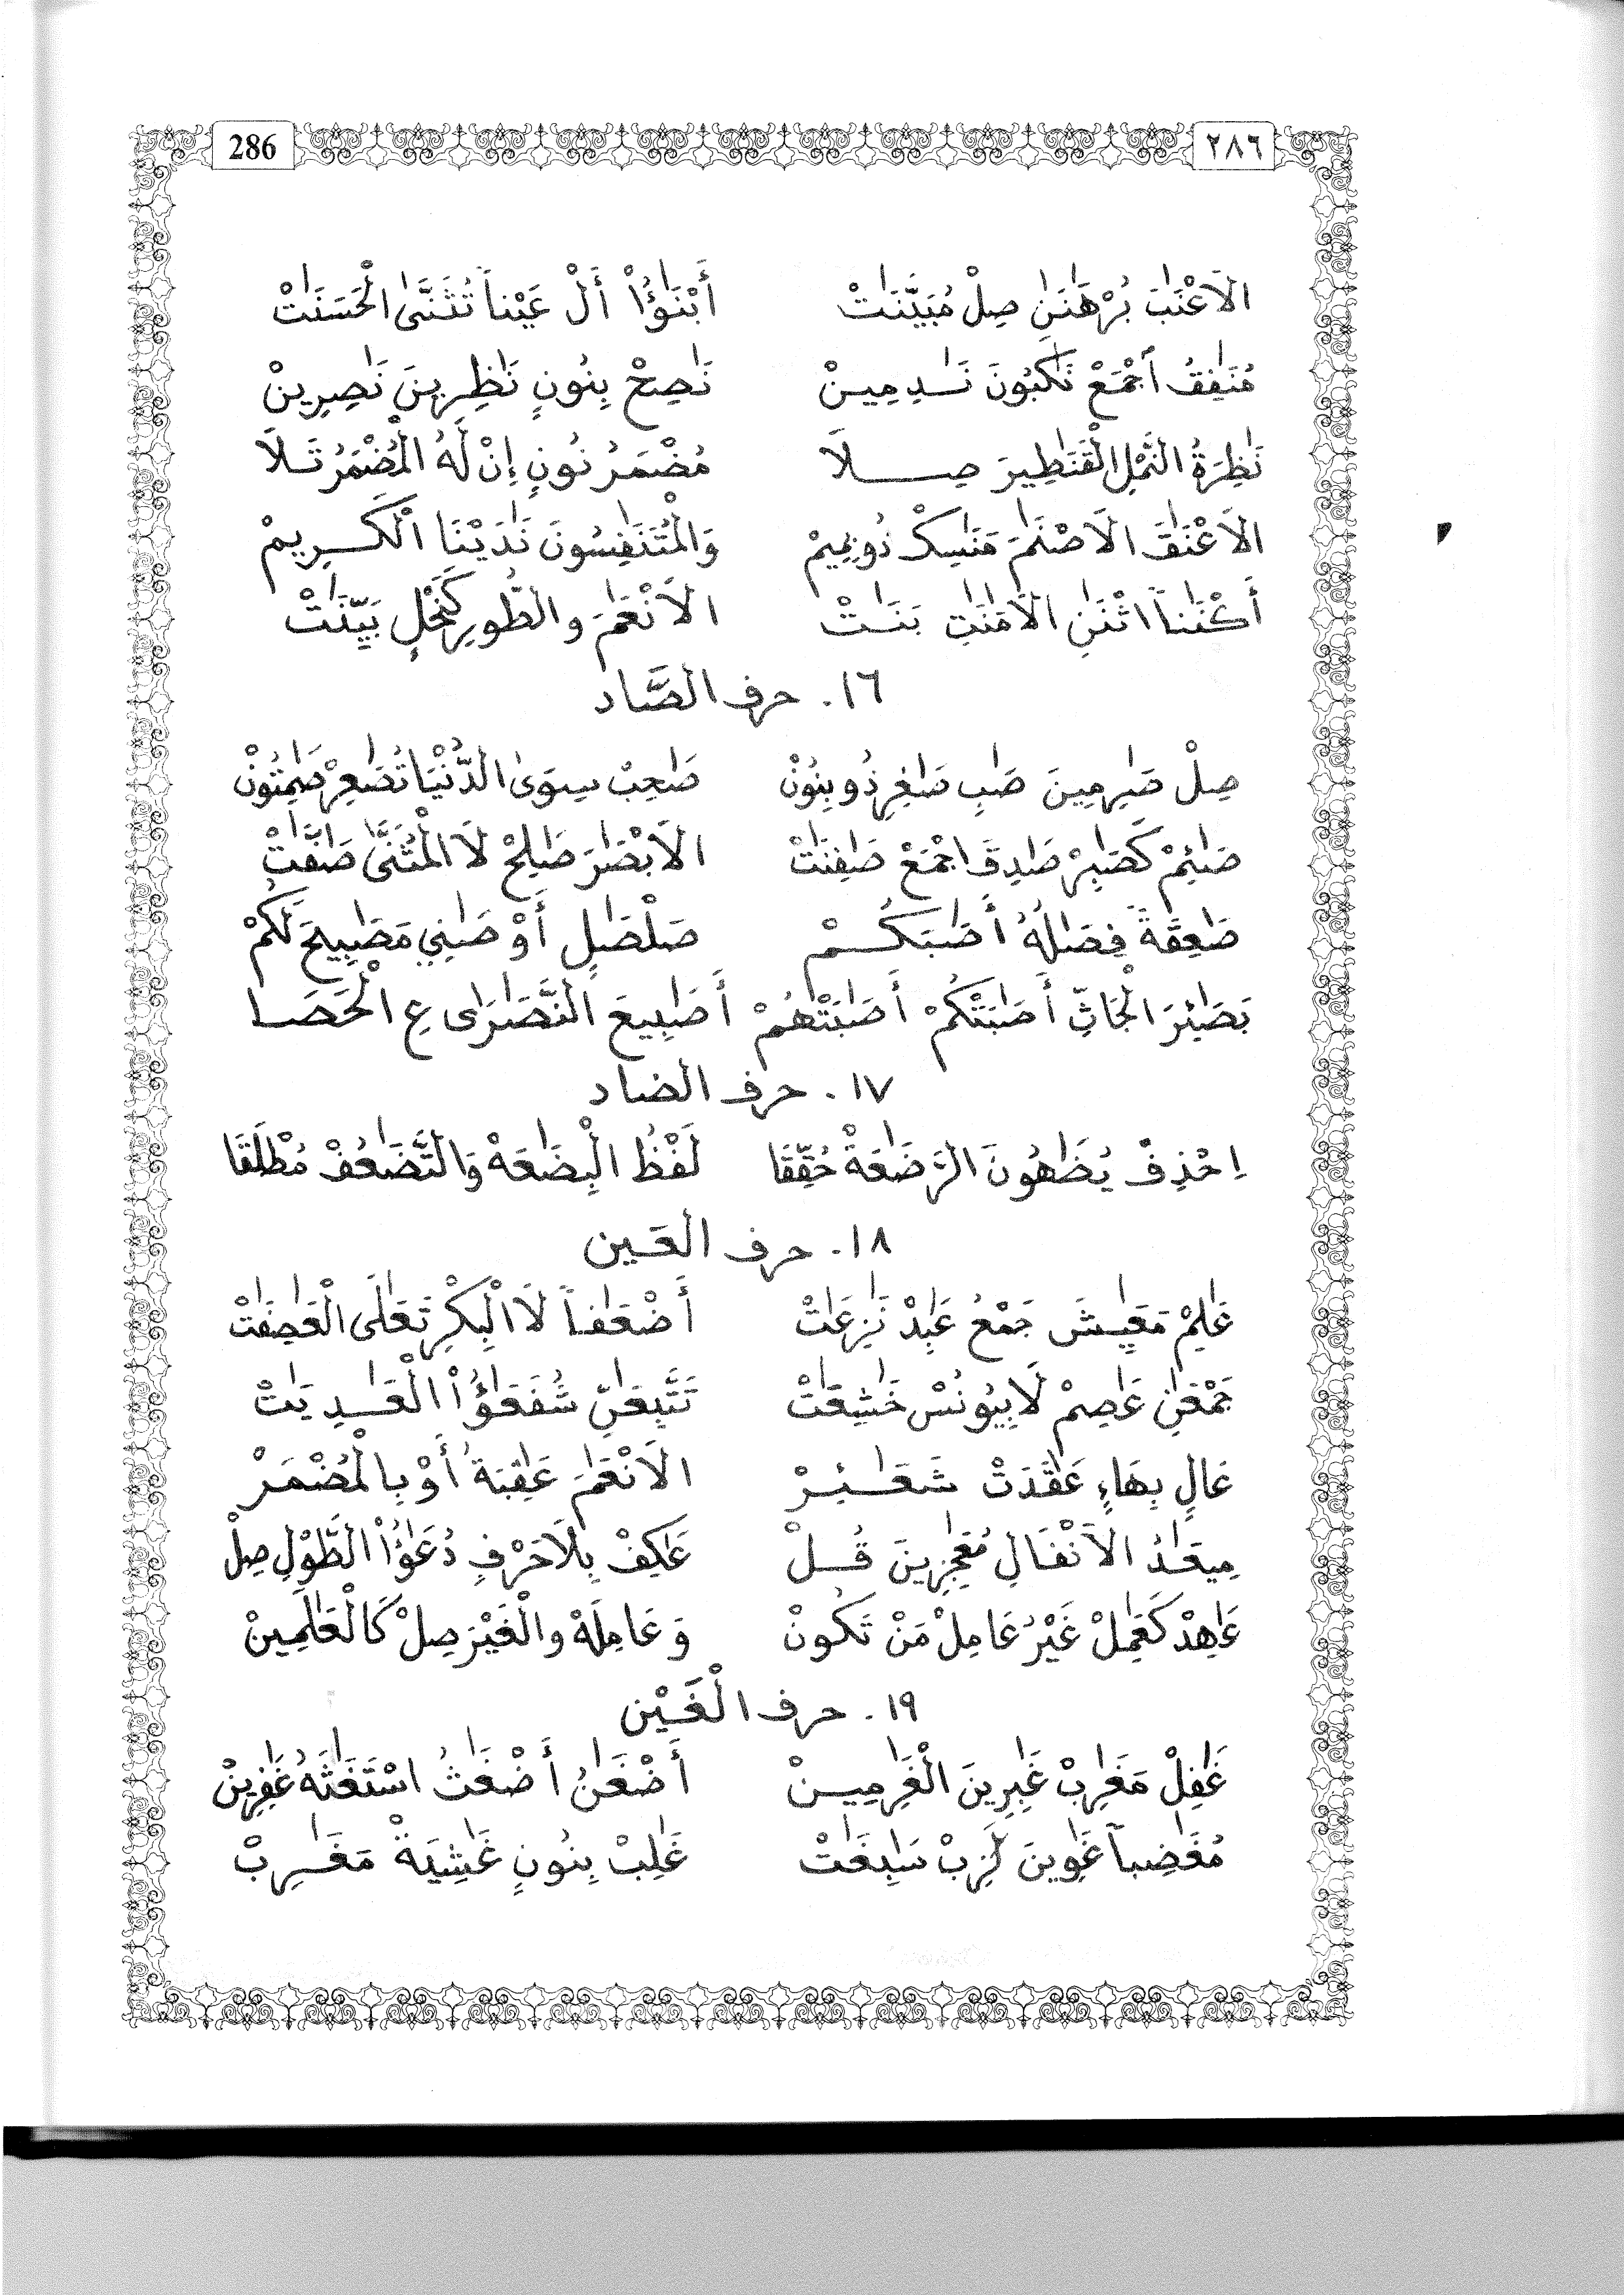 286 ٢٨٦
الَاعْنَٰبَ بُرْهَٰنَٰنِ صِلْ مُبَيَّنَٰتْ أَبْنَٰؤُاْ أَلْ عَيْناً تُثَنَّىٰ الْحَسَنَٰتْ
مُنَٰفِقُ أجْمَعْ نَٰكِبُونَ نَٰدِمِينْ نَٰصِحْ بِنُونٍ نَٰظِرِينَ نَٰصِرِينْ
نَٰظِرَةُ النَّمْلِ الْقَنَٰطِيرَ صِلَا مُضْمَرُ نُونٍ إِنْ لَهُ الْمُضْمَرُ تَلَا
الَاعْنَٰقَ الَاصْنَٰمَ مَنَٰسِكْ ذُو بِمِيمْ وَالْمُتَنَٰفِسُونَ نَٰدَيْنَا الْكَرِيمْ
أَكْنَٰناً اثْنَٰنِ الَامَٰنَٰتِ بَنَٰتْ الَانْعَٰمَ والطُّورِ كَنَخْلٍ بَيِّنَٰتْ
١٦. حرف الصَّاد
صِلْ صَٰرِمِينَ صَٰبِ صَٰغِرِ ذُو بِنُونْ صَٰحِبْ سِوَىٰ الدُّنْيَا تُصَٰعِرْ صَٰمِتُونْ
صَٰئِمْ كَصَٰبِرْ صَٰدِقَ اجْمَعْ صَٰفِنَٰتْ الَابْصَٰرَ صَٰلِحْ لَا الْمُثَنَّىٰ صَٰفَّٰتْ
صَٰعِقَةً فِصَٰلُهُ أَصَٰبَكُمْ صَلْصَٰلٍ أَوْ صَٰنِي مَصَٰبِيحَ لَكُمْ
بَصَٰئِرَ الْجَاثِ أَصَٰبَتْكُمْ أَصَٰبَتْهُمْ أَصَٰبِيعَ النَّصَٰرَىٰ عِ الْحَصَا
١٧. حرف الضاد
اِحْذِفْ يُضَٰهُونَ الرَّضَٰعَةْ حُقِّقَا لَفْظُ الْبِضَٰعَةْ وَالتَّضَٰعُفْ مُطْلَقَا
١٨. حرف العَين
عَٰلِمْ مَعَٰيِشَ جَمْعُ عَٰبِدْ نَٰزِعَٰتْ أَضْعَٰفاً لَا الْبِكْرِ تَعَٰلَى الْعَٰصِفَٰتْ
جَمْعَٰنِ عَٰصِمْ لَا بِيُونُسْ خَٰشِعَٰتْ تَتَّبِعَٰنِّ شُفَعَٰؤُاْ الْعَٰدِيَٰتْ
عَالٍ بِهَاءٍ عَٰقَدَتْ شَعَٰئِرْ الَانْعَٰمَ عَٰقِبَةُ أَوْ بِالْمُضْمَرْ
مِيعَٰدُ الَانْفَالِ مُعَٰجِزِينَ قُلْ عَٰكِفْ بِلَا حَرْفٍ دُعَٰؤُاْ الطَّوْلِ صِلْ
عَٰهِدْ كَعَٰمِلْ غَيْرُ عَامِلْ مَنْ تَكُونْ وَعَامِلَهْ والْغَيْرَ صِلْ كَالْعَٰلَمِينْ
١٩. حرف الْغَيْن
غَٰفِلْ مَغَٰرِبْ غَٰبِرِينَ الْغَٰرِمِينْ أَضْغَٰنُ أَضْغَٰثُ اسْتَغَٰثَهُ غَٰفِرِينْ
مُغَٰضِباً غَٰوِينَ لَٰزِبْ سَٰبِغَٰتْ غَٰلِبْ بِنُونٍ غَٰشِيَةْ مَغَٰرِبْ